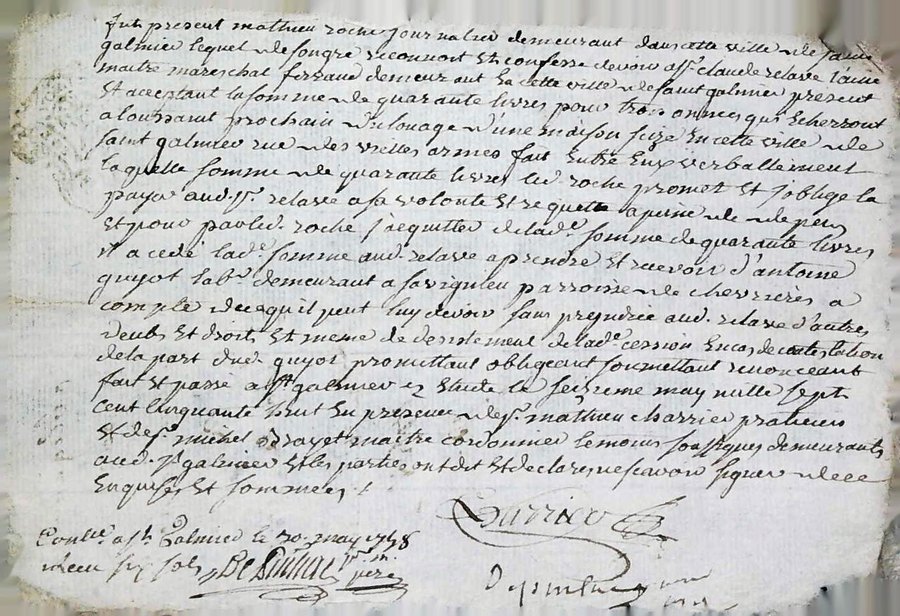 fut present mathieu roche journalier demeurant dans cette ville de saint
galmier lequel de son gre reconnoit et confesse devoir a sr. claude relave l'aine
maitre mareschal ferrand demeurant en cette ville de saint galmier present
et acceptant la somme de quarante livres pour trois annees qui echerront
a toussaint prochain du louage d'une maison size en cette ville de
saint galmier rue des vielles armes fait entre eux verballement
laquelle somme de quarante livres led. roche promet et s'oblige la
payer aud. sr. relave a sa volonté et requette a peine de depens
et pour par led. roche s'acquitter de lad. somme de quarante livres
il a cedé lad. somme aud. relave a prendre et recevoir d'antoine
guyot lab. demeurant a savignieu parroisse de chevrieres a
compte de ce qu'il peut luy devoir sans prejudice aud. relave d'autres
deubs et droits et meme de desistement de lad. cession en cas de contestation
de la part dud. guyot promettant obligeant soumettant renonceant
fait et passé a st. galmier en etude le seizieme may mille sept
cent cinquante huit en presence de sr. mathieu charrier praticien
et de sr. michel maitre cordonnier temoins soussignes demeurants
aud. st. galmier et les parties ont dit et declaré ne scavoir signer de ce
enquises et sommees.
Charrier
Conlle. a st. Galmier le 30. may 1758
recu six sols